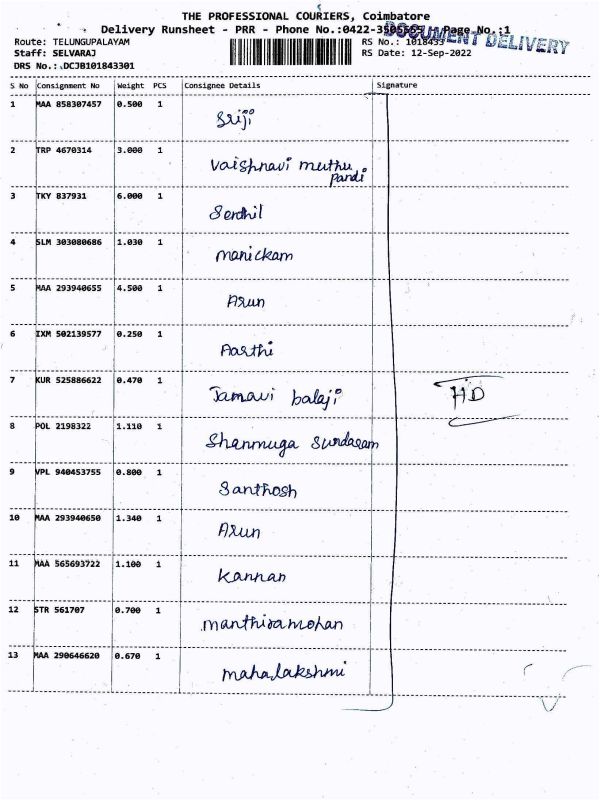 THE PROFESSIONAL COURIERS, Coimbatore
Delivery Runsheet - PRR - Phone No.:0422- Page No.:1
DOCUMENT DELIVERY
Route: TELUNGUPALAYAM RS No.: 1018433
Staff: SELVARAJ RS Date: 12-Sep-2022
DRS No.: DCJB101843301
S No Consignment No Weight PCS Consignee Details Signature
1 MAA 858307457 0.500 1 Sriji
2 TRP 4670314 3.000 1 Vaishnavi muthu
pandi
3 TKY 837931 6.000 1 Senthil
4 SLM 303080686 1.030 1 manickam
5 MAA 293940655 4.500 1 Arun
6 IXM 502139577 0.250 1 Aarthi
7 KUR 525886622 0.470 1 Jamavi balaji HD
8 POL 2198322 1.110 1 Shanmuga Sundaram
9 VPL 940453755 0.800 1 Santhosh
10 MAA 293940650 1.340 1 Arun
11 MAA 565693722 1.100 1 Kannan
12 STR 561707 0.700 1 manthiramohan
13 MAA 290646620 0.670 1 mahalakshmi